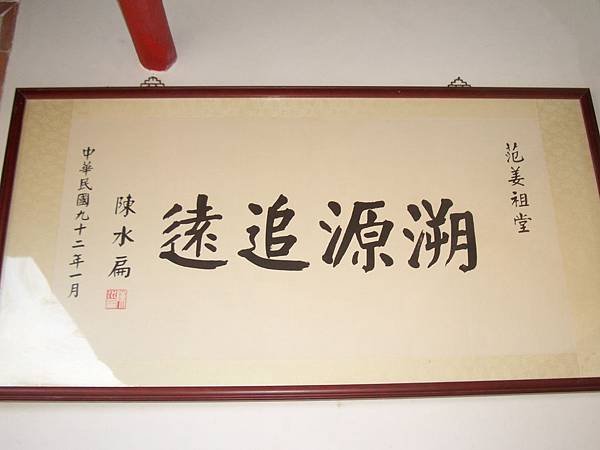 范姜祖堂
溯源追遠
陳水扁
中華民國九十二年一月